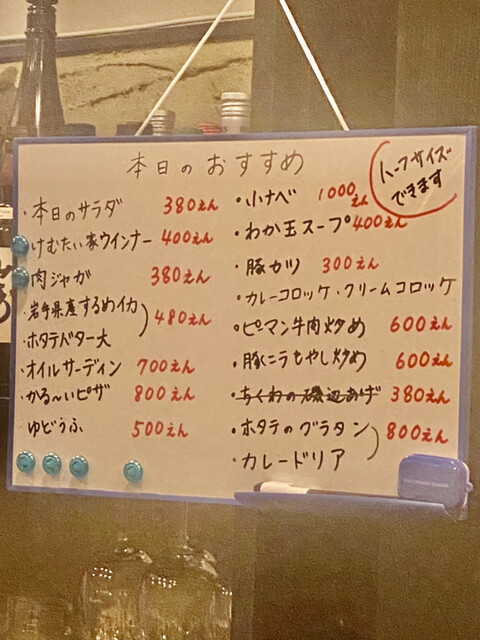 本日のおすすめ
ハーフサイズ
できます
・本日のサラダ 380えん
けむたい家ウインナー 400えん
肉ジャガ 380えん
・岩手県産するめイカ
・ホタテバター大
480えん
・オイルサーディン 700えん
・かる〜いピザ 800えん
ゆどうふ 500えん
・小ナベ 1000えん
・わか玉スープ 400えん
・豚カツ 300えん
・カレーコロッケ・クリームコロッケ
・ピーマン牛肉炒め 600えん
・豚ニラもやし炒め 600えん
・ちくわの磯辺あげ 380えん
・ホタテのグラタン
・カレードリア
800えん